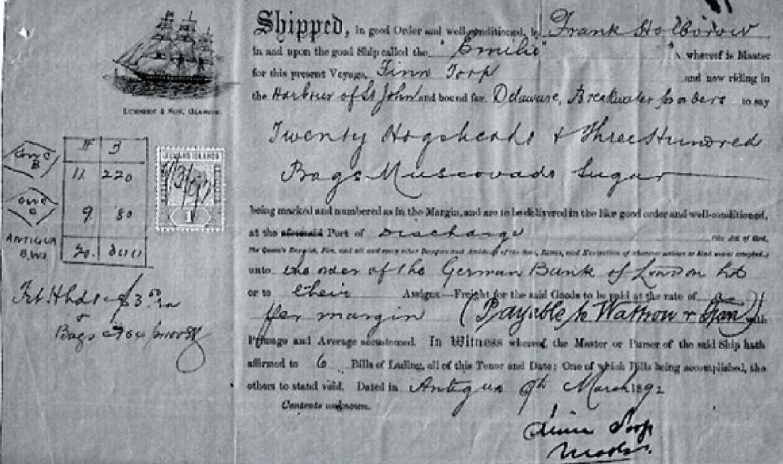 Shipped, in good Order and well-conditioned, by Frank Holborow
in and upon the good Ship called the "Emilie" whereof is Master
for this present Voyage, Finn Torp and now riding in
the Harbour of St John and bound for Delaware, Breakwater for orders to say
Twenty Hogsheads & Three Hundred
Bags Muscovado Sugar
being marked and numbered as in the Margin, and are to be delivered in the like good order and well-conditioned,
at the aforesaid Port of Discharge (the Act of God,
unto the order of the German Bank of London Ltd
or to their Assigns Freight for the said Goods to be paid at the rate of
per margin (Payable to with
Primage and Average accustomed. In Witness whereof, the Master or Purser of the said Ship hath
affirmed to 6 Bills of Lading, all of this Tenor and Date; One of which Bills being accomplished, the
others to stand void. Dated in Antigua 9th March 1892
Contents unknown.
Torp
Master.
& Son, Glasgow.
LEEWARD ISLANDS
H B
11 220
9 80
20 300
B
ANTIGUA
B.W.I
Frt. Hhds £3
&
Bags